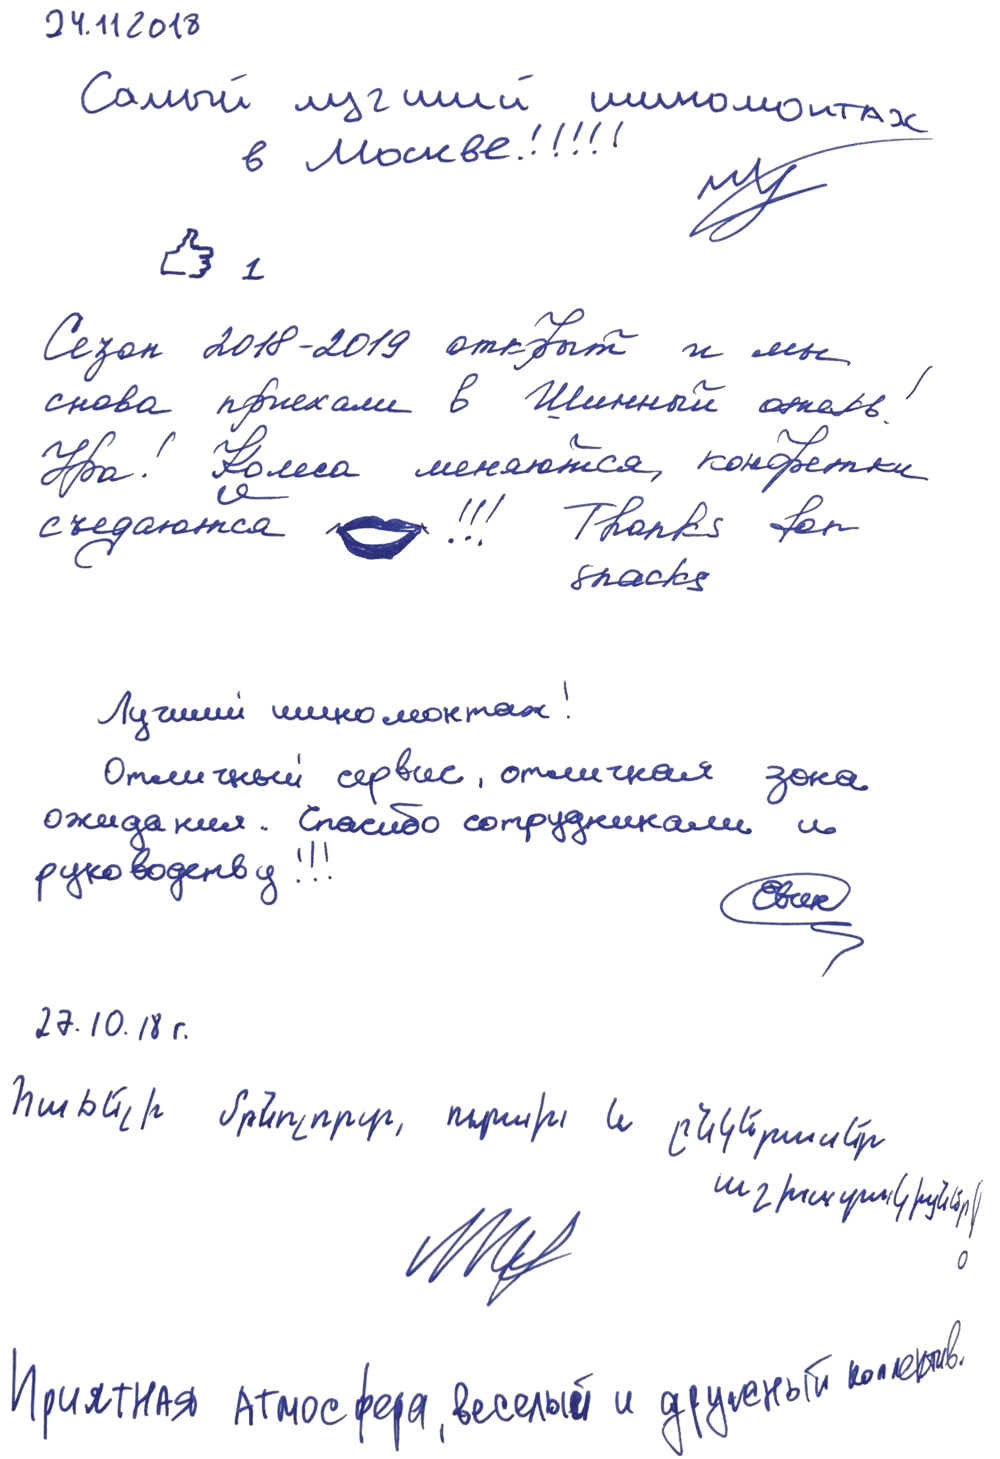 24.11 2018
Самый лучший шиномонтаж
в Москве!!!!!
1
Сезон 2018-2019 открыт и мы
снова приехали в Шинный ожель!
Ура! Колеса меняются, конфетки
съедаются !!! Thanks for
snacks
Лучший шиномонтаж!
Отличный сервис, отличная зона
ожидания. Спасибо сотрудникам и
руководству!!!
27.10.18 г.
Հաճելի մթնոլորտ, ուրախ և ընկերասեր
աշխատակիցներ!
Приятная атмосфера, веселый и дружный коллектив.